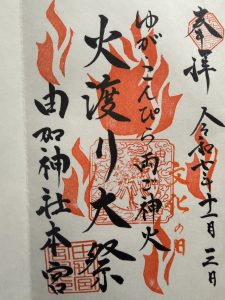 奉拝
令和年十一月三日
文化の日
ゆがこんぴら両ご神火
火渡り大祭
由加神社本宮